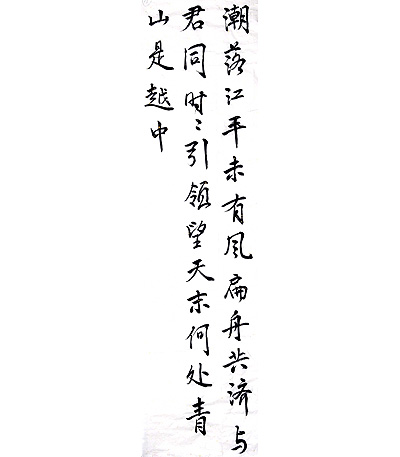 潮落江平未有风扁舟共济与
君同时〻引领望天末何处青
山是越中